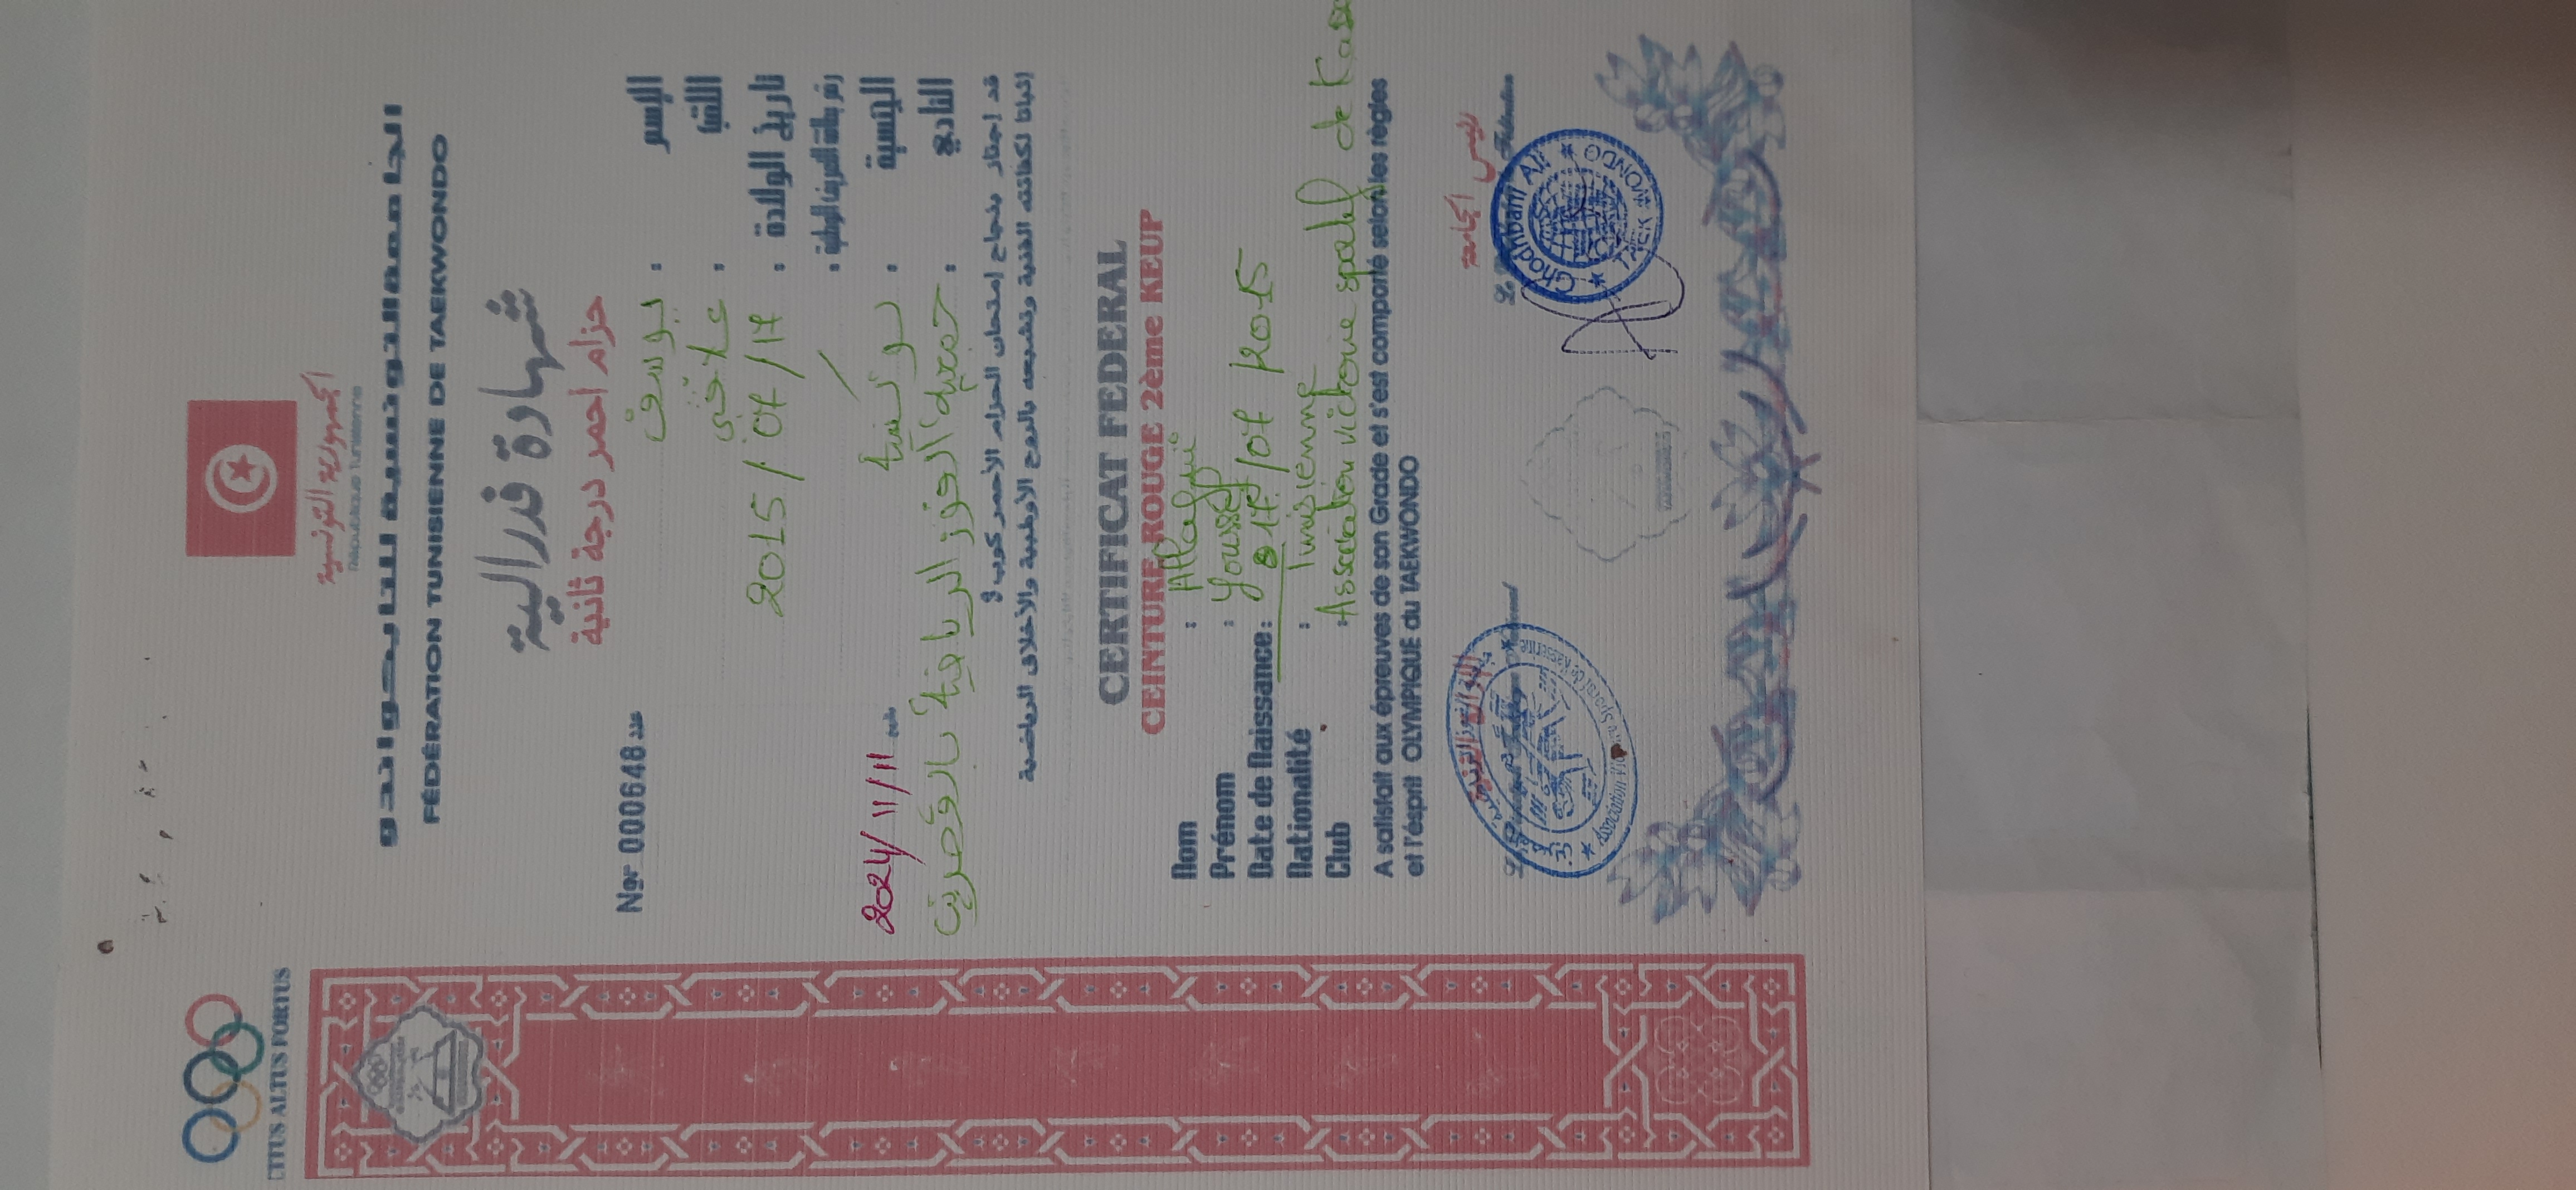 CITIUS ALTIUS FORTIUS
الجمهورية التونسية
République Tunisienne
الجامعة التونسية للتايكواندو
FÉDÉRATION TUNISIENNE DE TAEKWONDO
شهادة فدرالية
حزام احمر درجة ثانية
Nor 000648 عدد
الإسم : يوسف
اللقب : علاقي
تاريخ الولادة : 2015 / 07 / 17
رقم بطاقة التعريف الوطنية :
الجنسية : تونسية
2024/11/11
النادي : جمعية الفوز الرياضية بالقصرين
قد إجتاز بنجاح إمتحان الحزام الأحمر كوب 2
إثباتا لكفائته الفنية وتشبعه بالروح الأولمبية والأخلاق الرياضية
CERTIFICAT FEDERAL
CEINTURE ROUGE 2ème KEUP
Nom : Allegui
Prénom : Youssef
Date de Naissance: 17 / 07 / 2015
Nationalité : Tunisienne
Club : Association victoire spotif de Kass
A satisfait aux épreuves de son Grade et s'est comporté selon les règles
et l'ésprit OLYMPIQUE du TAEKWONDO
رئيس الجامعة
Ghodhbani Ali
TAEK WONDO